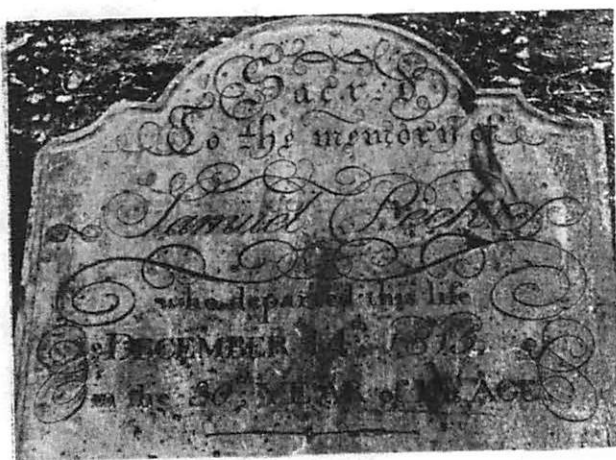 Sacred
To the memory of
Samuel Peck
who departed this life
DECEMBER 14th
in the YEAR of HIS AGE